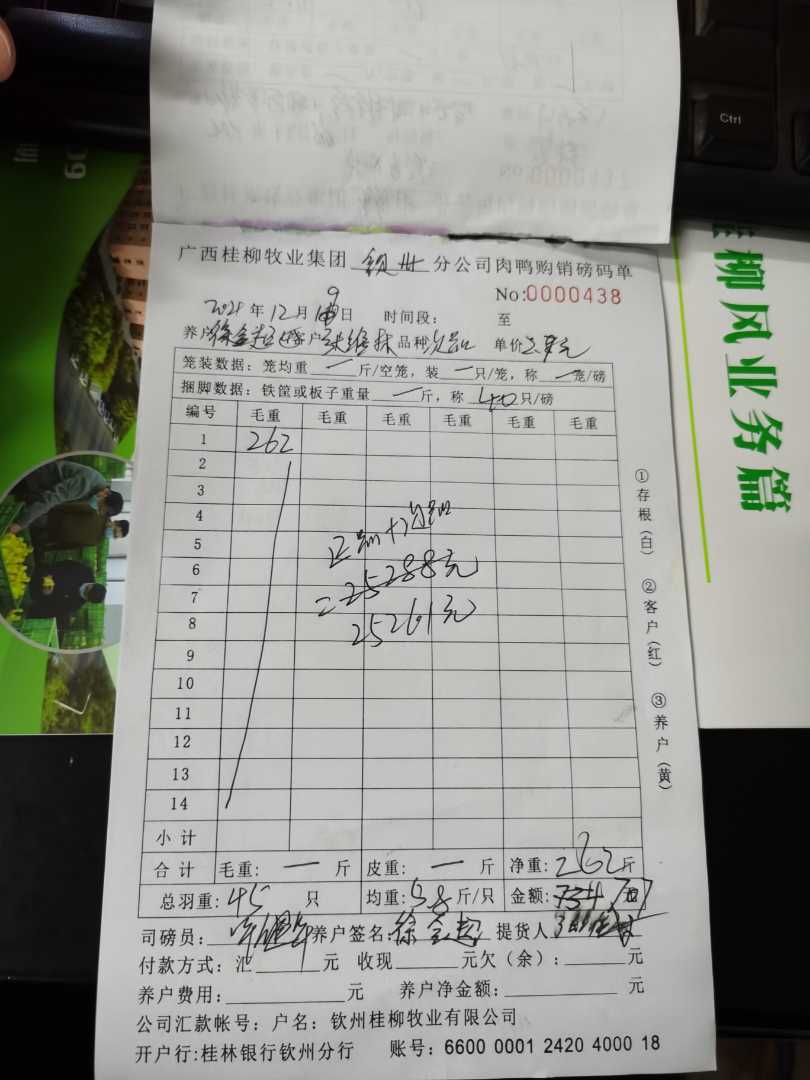 Ctrl
09
广西桂柳牧业集团 钦州 分公司肉鸭购销磅码单
No:0000438
2025年12月9日 时间段: 至
养户 徐金起 客户 品种 次品 单价 元
笼装数据: 笼均重 — 斤/空笼, 装 — 只/笼, 称 — 笼/磅
捆脚数据: 铁筐或板子重量 — 斤, 称 40 只/磅
编号 毛重 毛重 毛重 毛重 毛重 毛重
1 262
2
3
4
5
6
7
8
9
10
11
12
13
14
正品+次品
=25288元
25261元
小计
合计 毛重: — 斤 皮重: — 斤 净重: 262斤
总羽重: 45 只 均重: 5.8斤/只 金额:
司磅员: 养户签名: 徐金起 提货人
付款方式: 汇 元 收现 元欠(余): 元
养户费用: 元 养户净金额: 元
公司汇款帐号: 户名: 钦州桂柳牧业有限公司
开户行:桂林银行钦州分行 账号: 6600 0001 2420 4000 18
①存根(白) ②客户(红) ③养户(黄)
桂柳风业务篇